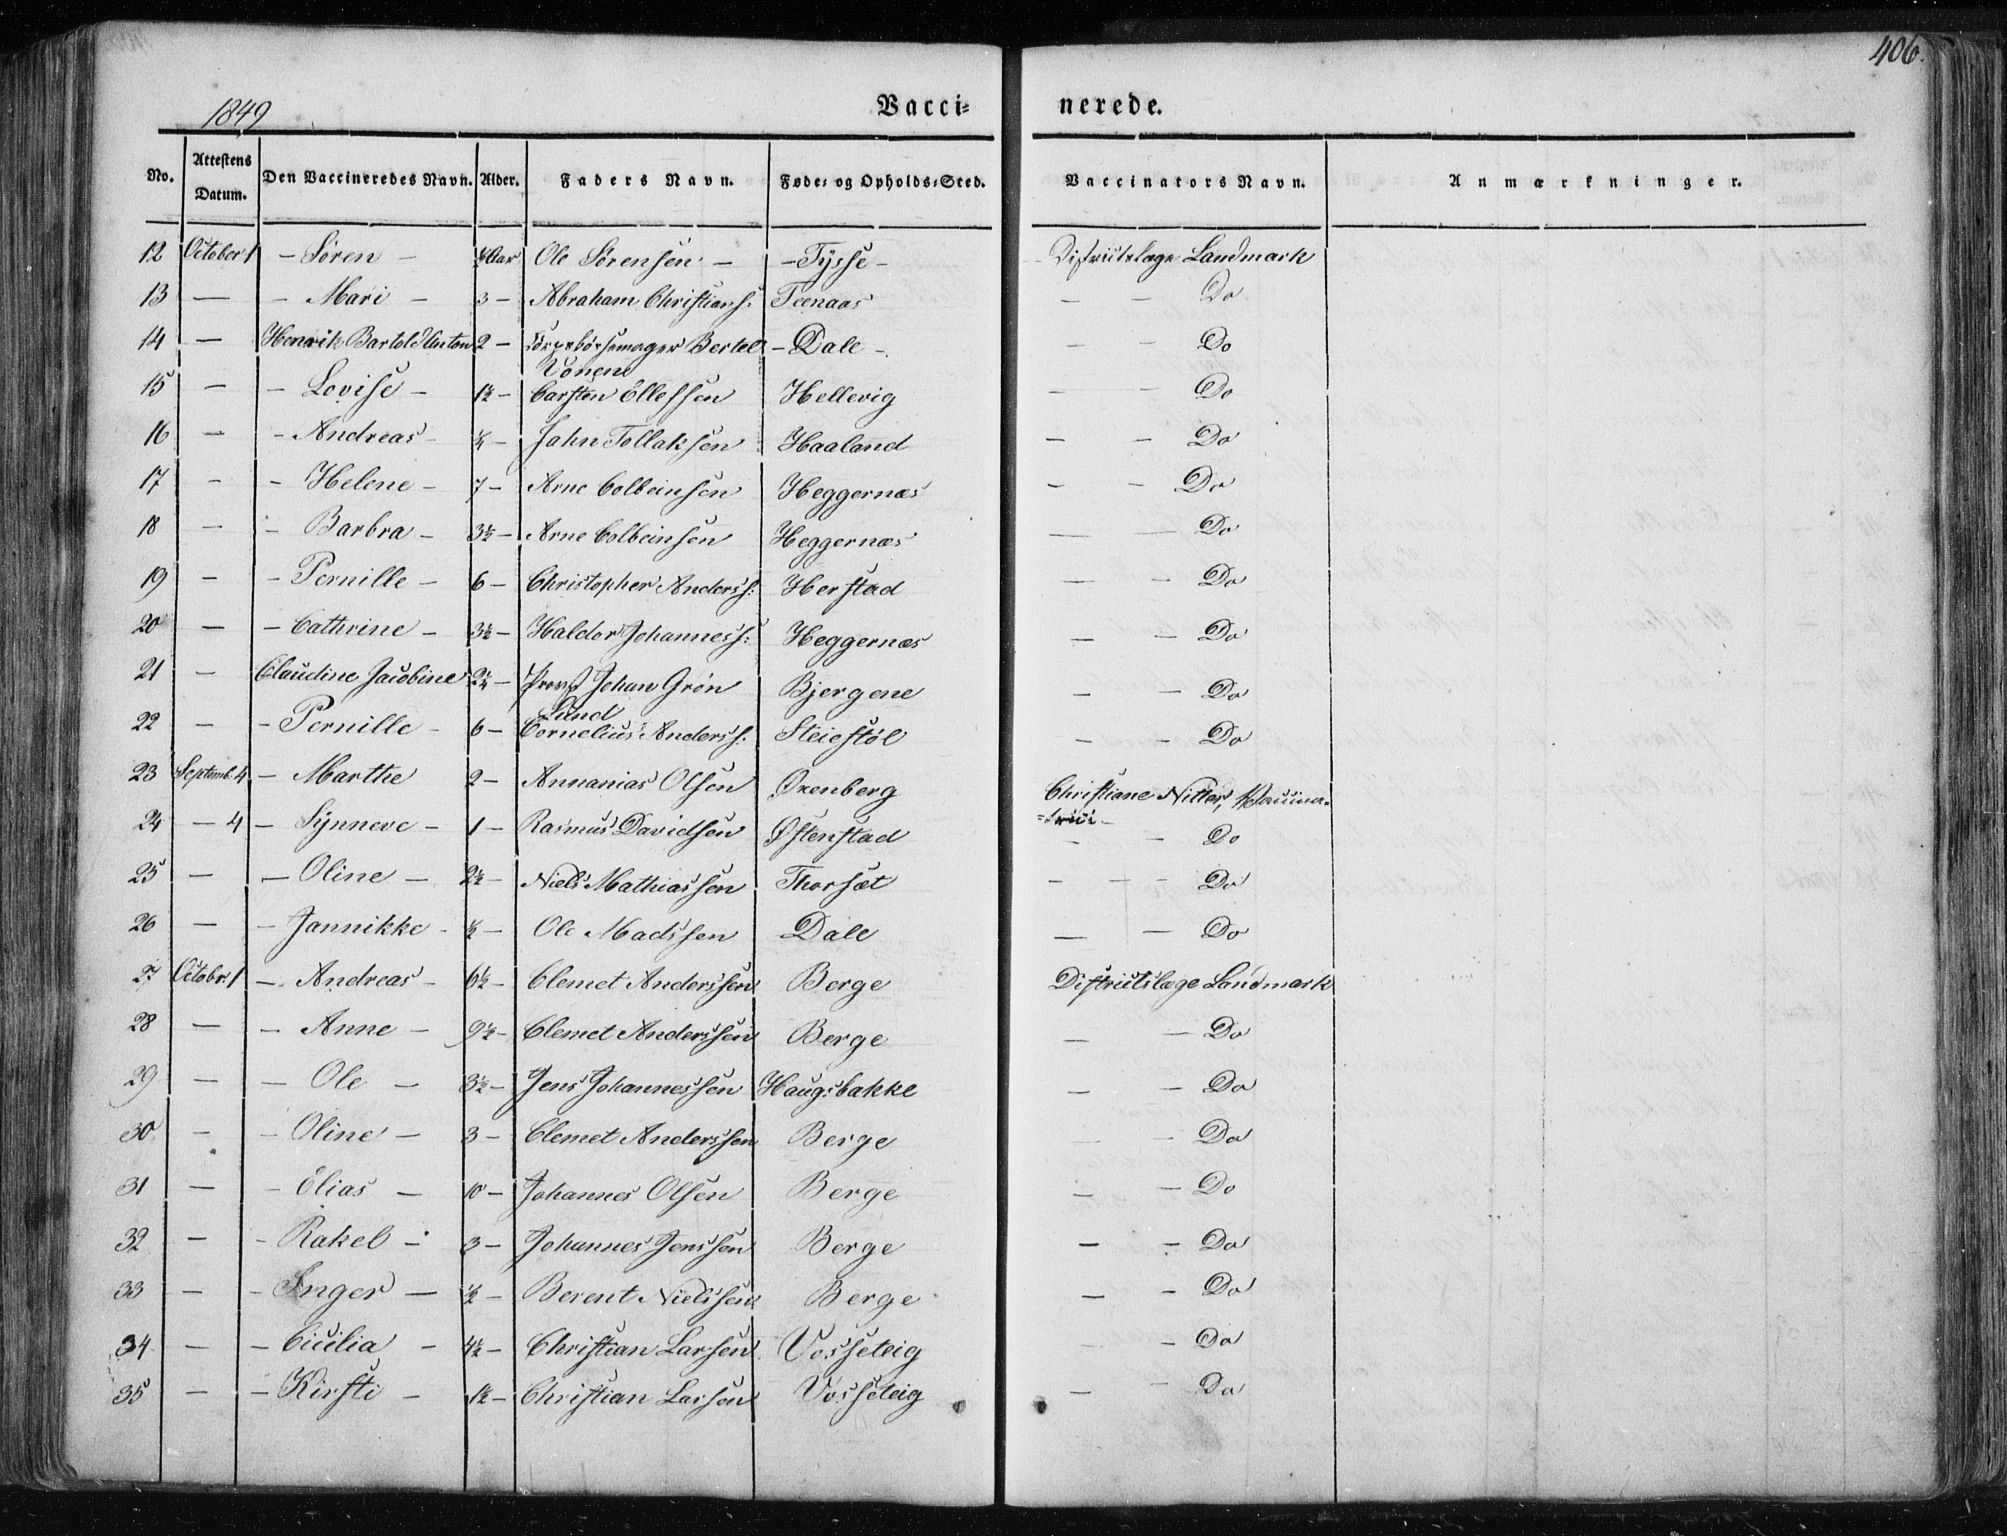 406.
1849
Vacci- nerede.
No. Attestens Datum. Den Vaccineredes Navn. Alder. Faders Navn. Føde- og Opholds-Sted. Vaccinators Navn. Anmærkninger.
12 October 1 - Søren - Aar Ole Sørensen - - Tysse - Districtslæge Landmark
13 — - Mari - 3 - Abraham Christians: Teenaas — - Do
14 — Henrik Bartold Anton 2 - Bertel - Dale - — - Do
Vonen
15 - - Lovise - 1½ - Carsten Ellefsen Hellevig — - Do
16 - - Andreas - ¼ - John Tollaksen Haaland — - Do
17 - - Helene - 7 - Arne Colbeinsen Heggernæs — - Do
18 - - Barbra - 3½ - Arne Colbeinsen Heggernæs — - Do
19 - - Pernille - 6 - Christopher Anderss: Herstad — - Do
20 - - Cathrine - 3½ - Haldor Johanness: Heggernæs — - Do
21 - Claudine Jacobine 2¼ - Provst Johan Grøn Bjergene - - Do
Lund
22 - - Pernille - 6 - Cornelius Anderss: Steiestøl - - Do
23 Septemb. 4 - Marthe 2 - Annanias Olsen Oxenberg Christiane Nitter, Vaccina-
=trice -
24 - 4 - Synneve - 1 - Rasmus Davidsen Østenstad - - Do
25 - - Oline - 2½ - Niels Mathiassen Thorsæt - - - Do
26 - - Jannikke - ½ - Ole Madssen Dale — - Do
27 Octobr. 1 - Andreas - 6½ - Clemet Anderssen Berge Districtslæge Landmark
28 — - Anne - 9½ - Clemet Anderssen Berge — - Do
29 - - Ole - 3½ - Jens Johannessen Haugsbakke — - Do
30 - - Oline - 3 - Clemet Anderssen Berge — - Do
31 - - Elias - 10 - Johannes Olsen Berge - - Do
32 - - Rakel - 3 - Johannes Jenssen Berge - - Do
33 - - Inger - ½ - Berent Nielssen Berge - - Do
34 - - Cicilia - 4½ - Christian Larsen Vosseteig - - Do
35 - - Kirsti - 1½ - Christian Larsen Vosseteig - - Do